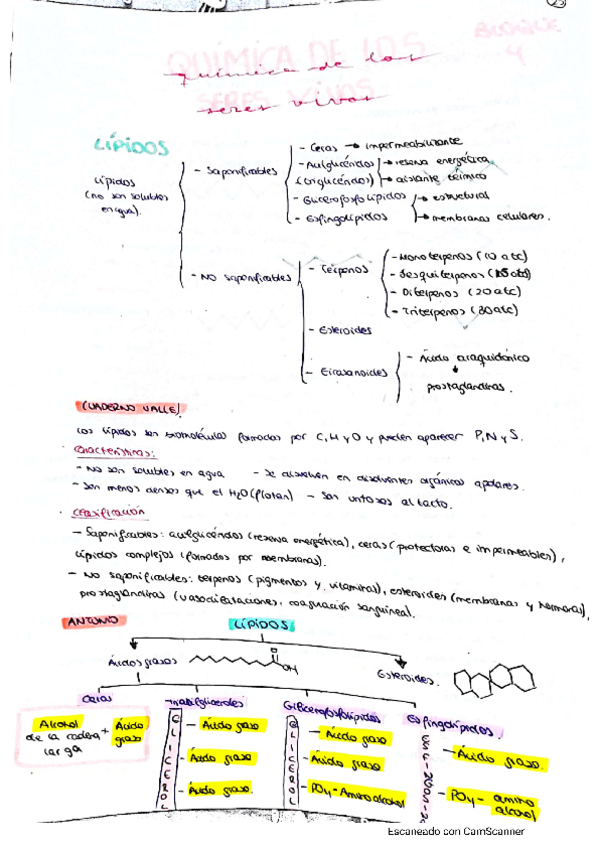 23
QUÍMICA DE LOS
SERES VIVOS
BLOQUE
4
química de los
seres vivos
LÍPIDOS
Lípidos
(no son solubles
en agua).
- Saponificables
- Ceras → impermeabilizante
- Acilglicéridos → reserva energética
(triglicéridos) → aislante térmico
- Glicerofosfolípidos → estructural
- Esfingolípidos → membranas celulares.
- NO saponificables
- Terpenos
- Monoterpenos (10 atc)
- Sesquiterpenos (15 atc)
- Diterpenos (20 atc)
- Triterpenos (30 atc)
- Esteroides
- Eicosanoides
- Ácido araquidónico
↓
prostaglandinas.
CUADERNO VALLE
Los lípidos son biomoléculas formadas por C, H y O y pueden aparecer P, N y S.
Características:
- No son solubles en agua - Se disuelven en disolventes orgánicos apolares.
- Son menos densos que el H2O (flotan) - Son untosos al tacto.
Clasificación
- Saponificables: acilglicéridos (reserva energética), ceras (protectoras e impermeables),
lípidos complejos (formados por membranas).
- No saponificables: terpenos (pigmentos y vitaminas), esteroides (membranas y hormonas),
prostaglandinas (vasodilataciones, coagulación sanguínea).
ANTONIO
LÍPIDOS
Ácidos grasos
O
OH
Esteroides.
Ceras
Triacilgliceroles
Glicerofosfolípidos
Esfingolípidos
Alcohol + Ácido
de la cadena graso
larga
GLICEROL
- Ácido graso
- Ácido graso
- Ácido graso.
GLICEROL
- Ácido graso
- Ácido graso
- PO4 - Aminoalcohol
- Ácido graso.
- PO4 - amino
alcohol
Escaneado con CamScanner